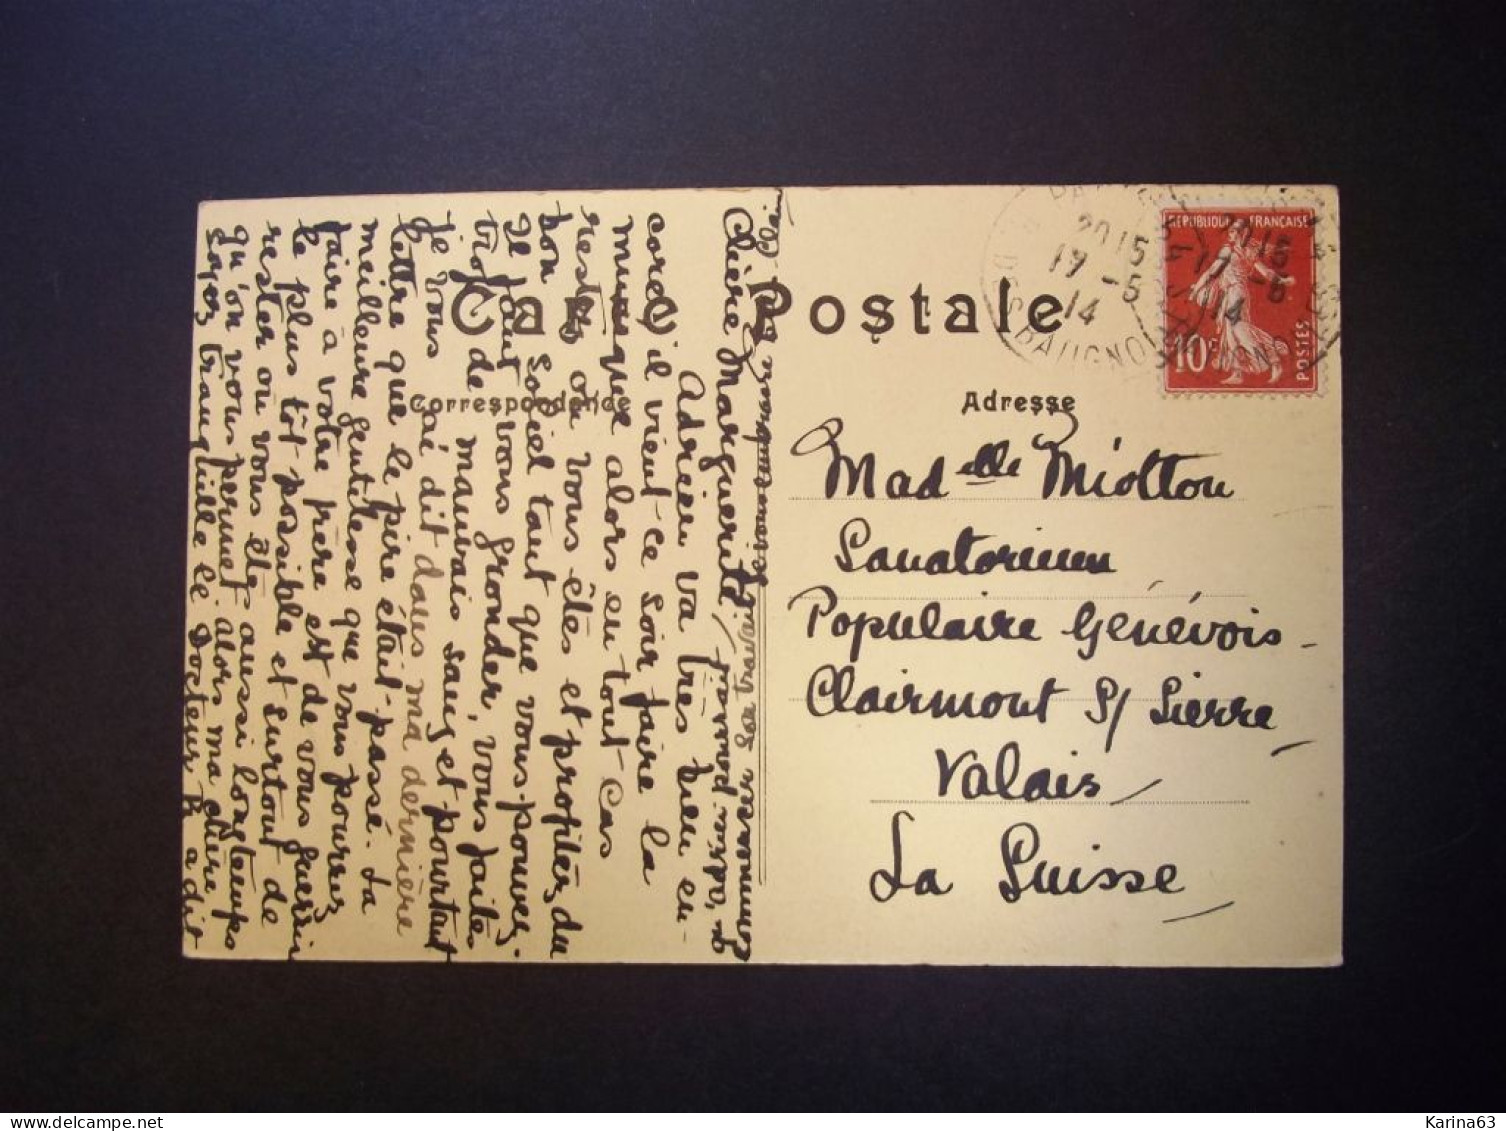 Carte Postale
Correspondance
Adresse
REPUBLIQUE FRANÇAISE
10 c
POSTES
20 15
19 - 5
14
DES BATIGNOLLES
Mad elle Miolton
Sanatorium
Populaire Genévois
Clairmont s/ Sierre
Valais
La Suisse
Chère Marguerite,
Adrien va très bien en-
core, il vient ce soir faire la
alors en tout cas
restez où vous êtes et profitez du
bon soleil tant que vous pouvez.
Je vous gronder, vous faites
trop de mauvais sang et pourtant
je vous ai dit dans ma dernière
lettre que le pire était passé. La
meilleure gentillesse que vous pourrez
faire à votre frère est de vous guérir
le plus tôt possible et surtout de
rester où vous êtes aussi longtemps
qu'on vous permet alors ma chère
soyez tranquille le Docteur R a dit
Adrien pourra
commencer son travail
Je vous embrasse